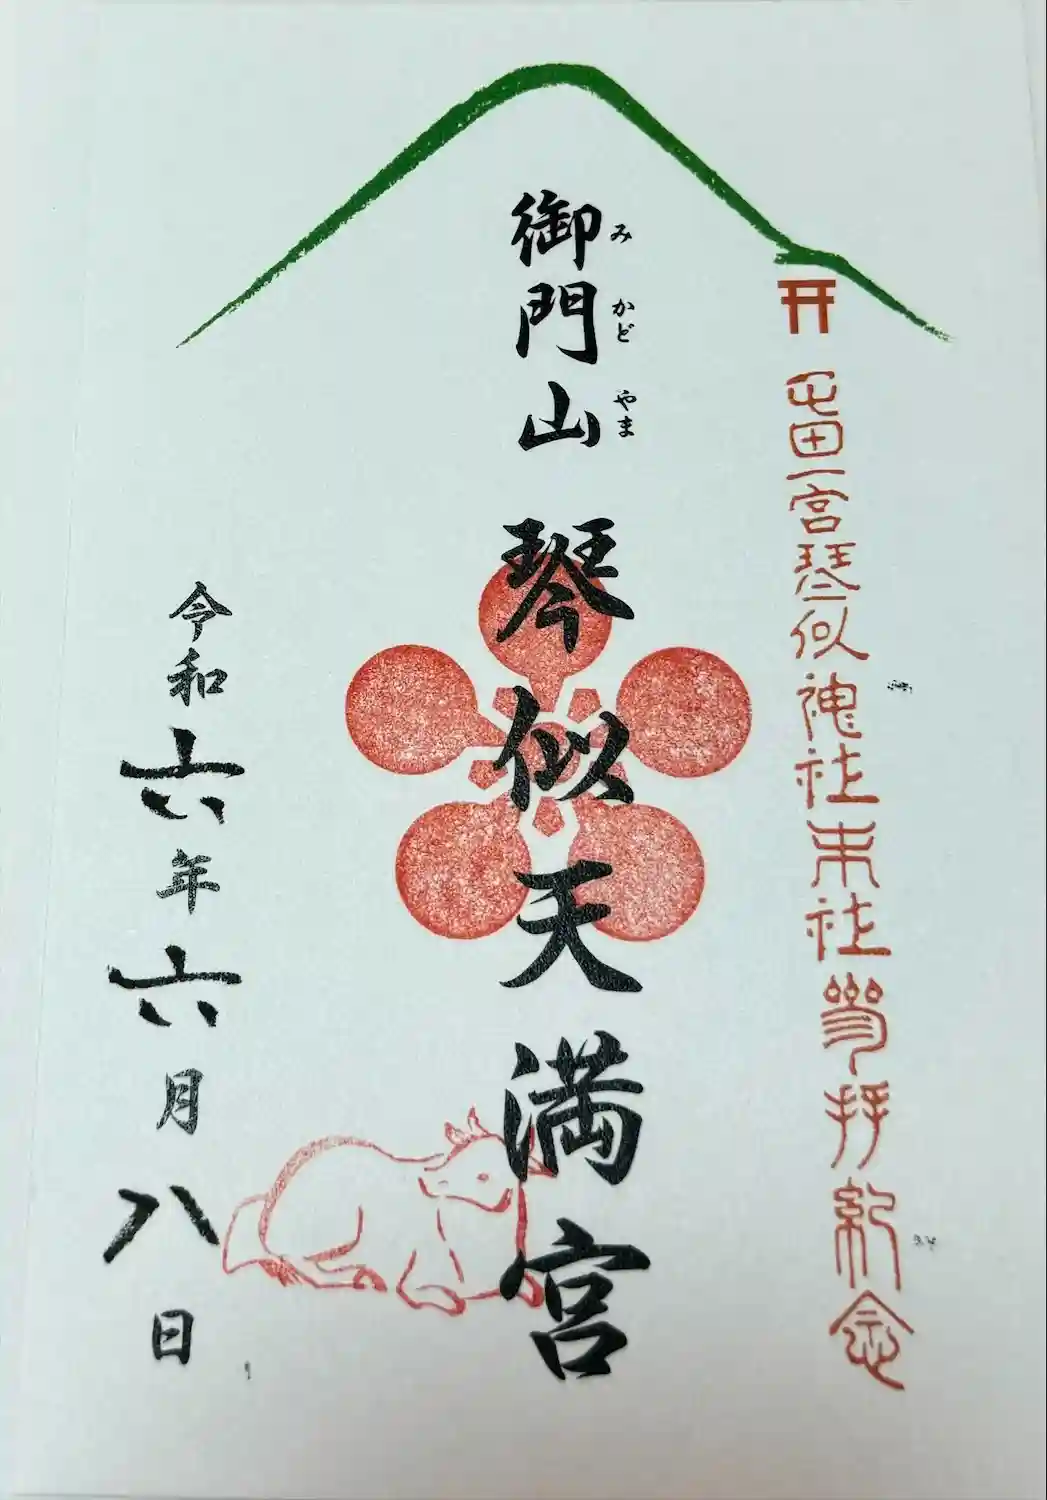 屯田一宮琴似神社末社参拝紀念
御門山 琴似天満宮
みかどやま
令和六年六月八日